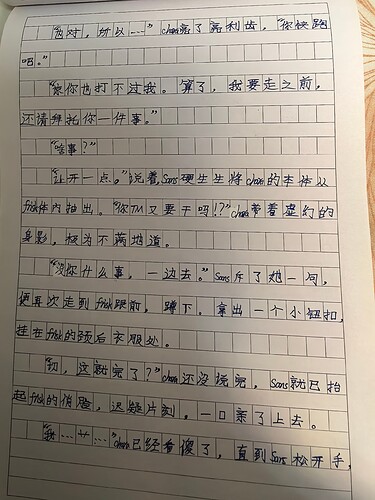 "也对，所以……" chara亮了亮利齿，"你快跑
吧。"
"亲你也打不过我。算了，我要走之前，
还请拜托你一件事。"
"啥事？"
"让开一点。"说着Sans硬生生将chara的本体从
frisk体内抽出。"你TM又要干吗！？"chara带着虚幻的
身影，极为不满地道。
"没你什么事，一边去。"Sans斥了她一句，
便再次走到frisk跟前，蹲下。拿出一个小钮扣，
挂在frisk的颈后衣服处。
"切，这就完了？"chara还没说完，Sans就已抬
起frisk的俏脸，迟疑片刻。一口亲了上去。
"我……艹……"chara已经看傻了，直到Sans松开手，